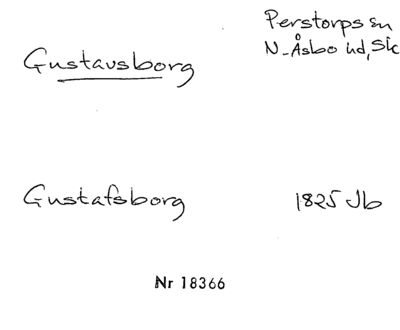 Perstorps sn
Gustavsborg N-Åsbo hd, Sk
Gustafsborg 1825 Jb
Nr 18366